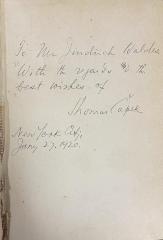 To Mr. Jindrich Waldes
With the regards & the
best wishes of
Thomas Capek
New York City,
Jany 27, 1920.